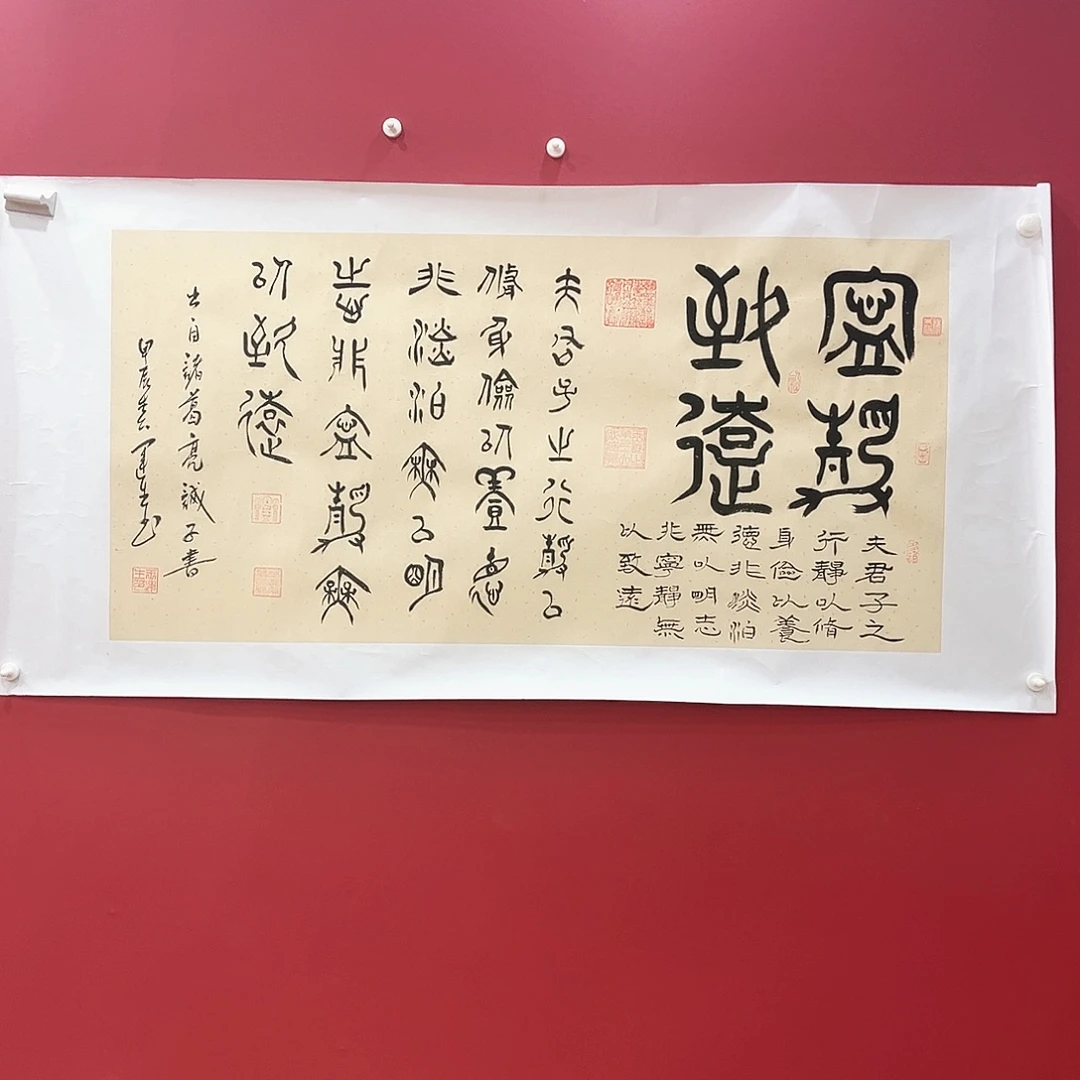 寧靜
致遠
夫君子之
行靜以脩
身儉以養
德非淡泊
無以明志
非寧靜無
以致遠
夫君子之行靜以
脩身儉以養悳
非淡泊無以明
志非寧靜無
以致遠
出自諸葛亮誡子書
甲辰春